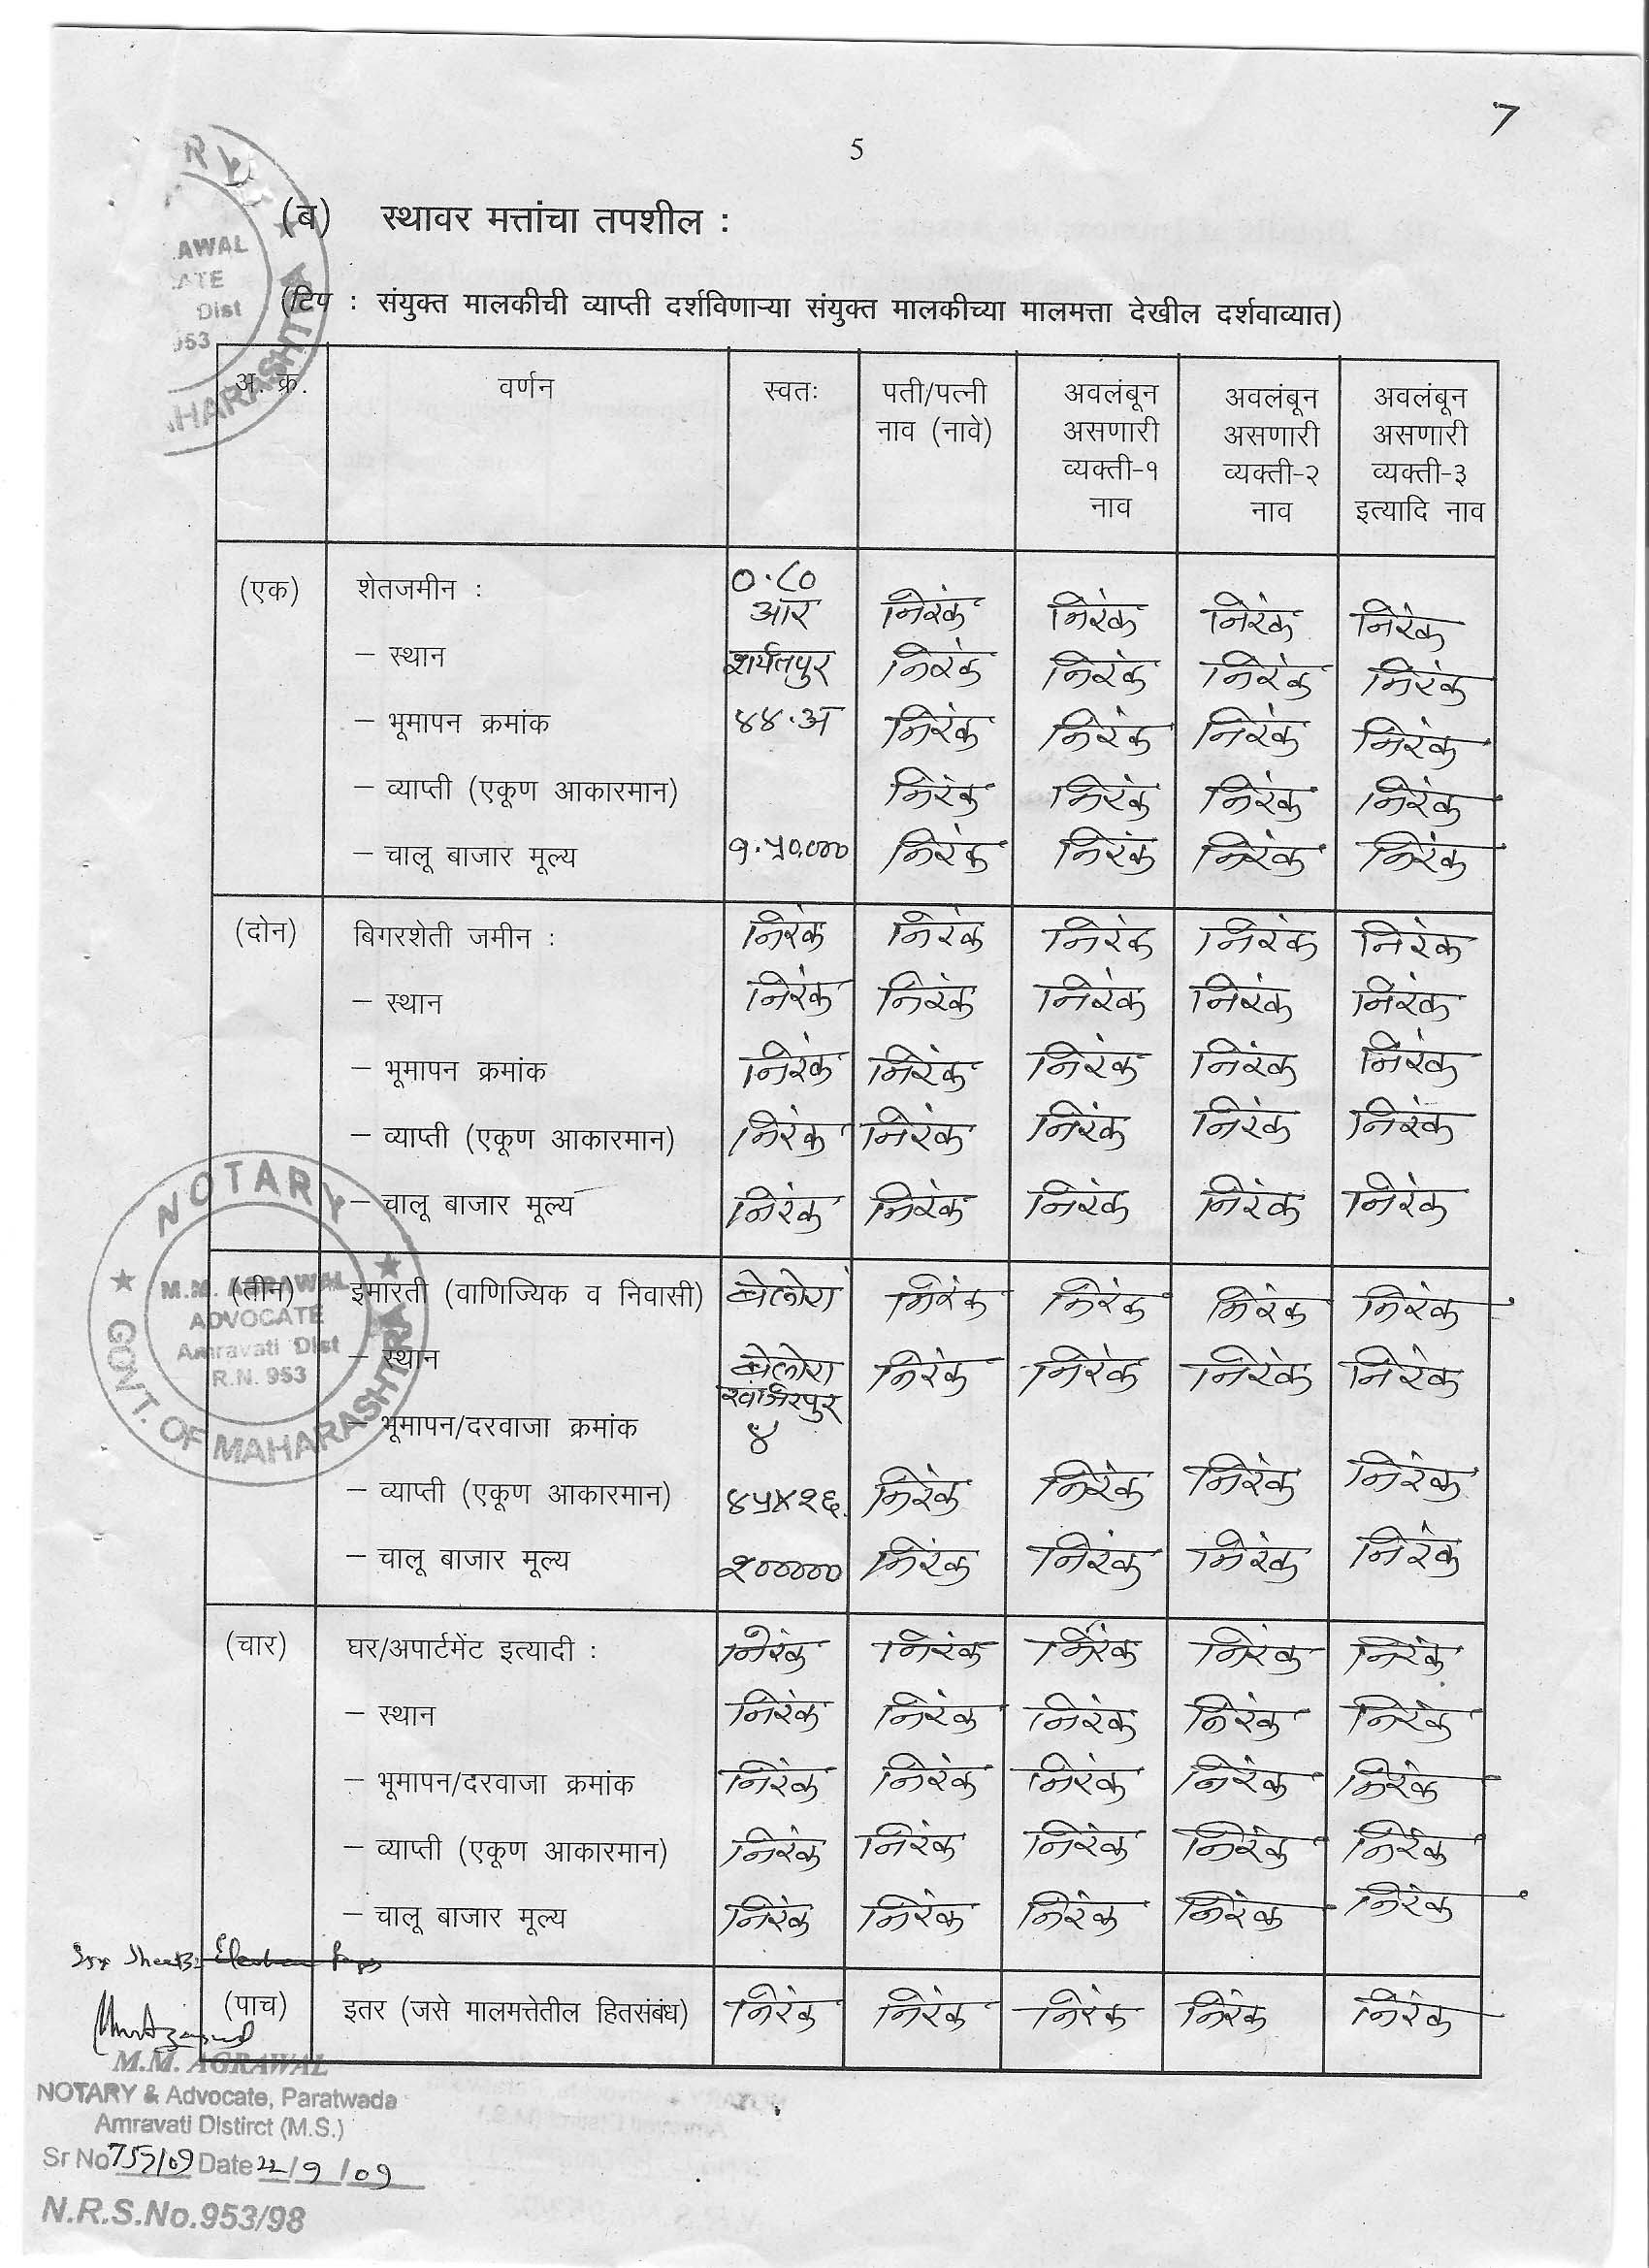 7
5
(ब) स्थावर मत्तांचा तपशील :
(टिप : संयुक्त मालकीची व्याप्ती दर्शविणाऱ्या संयुक्त मालकीच्या मालमत्ता देखील दर्शवाव्यात)
अ. क्र. वर्णन स्वतः पती/पत्नी अवलंबून अवलंबून अवलंबून
नाव (नावे) असणारी असणारी असणारी
व्यक्ती-१ व्यक्ती-२ व्यक्ती-३
नाव नाव इत्यादि नाव
०.८०
(एक) शेतजमीन : आर निरंक निरंक निरंक निरंक
– स्थान शर्यतपुर निरंक निरंक निरंक निरंक
– भूमापन क्रमांक ४४.अ निरंक निरंक निरंक निरंक
– व्याप्ती (एकूण आकारमान) निरंक निरंक निरंक निरंक
– चालू बाजार मूल्य १.५०,००० निरंक निरंक निरंक निरंक
(दोन) बिगरशेती जमीन : निरंक निरंक निरंक निरंक निरंक
– स्थान निरंक निरंक निरंक निरंक निरंक
– भूमापन क्रमांक निरंक निरंक निरंक निरंक निरंक
– व्याप्ती (एकूण आकारमान) निरंक निरंक निरंक निरंक निरंक
– चालू बाजार मूल्य निरंक निरंक निरंक निरंक निरंक
(तीन) इमारती (वाणिज्यिक व निवासी) बेलोरा निरंक निरंक निरंक निरंक
– स्थान बेलोरा निरंक निरंक निरंक निरंक
– भूमापन/दरवाजा क्रमांक ४
– व्याप्ती (एकूण आकारमान) ४५×२६ निरंक निरंक निरंक निरंक
– चालू बाजार मूल्य २००००० निरंक निरंक निरंक निरंक
(चार) घर/अपार्टमेंट इत्यादी : निरंक निरंक निरंक निरंक निरंक
– स्थान निरंक निरंक निरंक निरंक निरंक
– भूमापन/दरवाजा क्रमांक निरंक निरंक निरंक निरंक निरंक
– व्याप्ती (एकूण आकारमान) निरंक निरंक निरंक निरंक निरंक
– चालू बाजार मूल्य निरंक निरंक निरंक निरंक निरंक
(पाच) इतर (जसे मालमत्तेतील हितसंबंध) निरंक निरंक निरंक निरंक निरंक
NOTARY
M.M. AGRAWAL
ADVOCATE
Amravati Dist
R.N. 953
GOVT. OF MAHARASHTRA
M.M. AGRAWAL
NOTARY & Advocate, Paratwada
Amravati Distirct (M.S.)
Sr No 759/09 Date 22/9/09
N.R.S.No.953/98